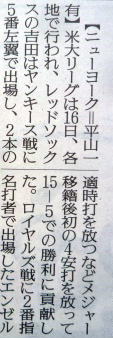 【ニューヨーク＝平山一
有】米大リーグは16日、各
地で行われ、レッドソック
スの吉田はヤンキース戦に
5番左翼で出場し、2本の
適時打を放つなどメジャー
移籍後初の4安打を放って
15―5での勝利に貢献し
た。ロイヤルズ戦に2番指
名打者で出場したエンゼル